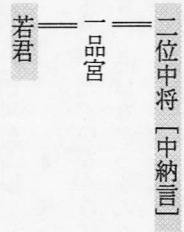 二位中将［中納言］
一品宮
若君